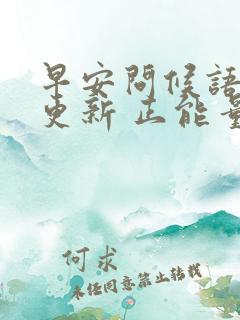 早安问候语
更新 正能量
何求
未经同意禁止转载